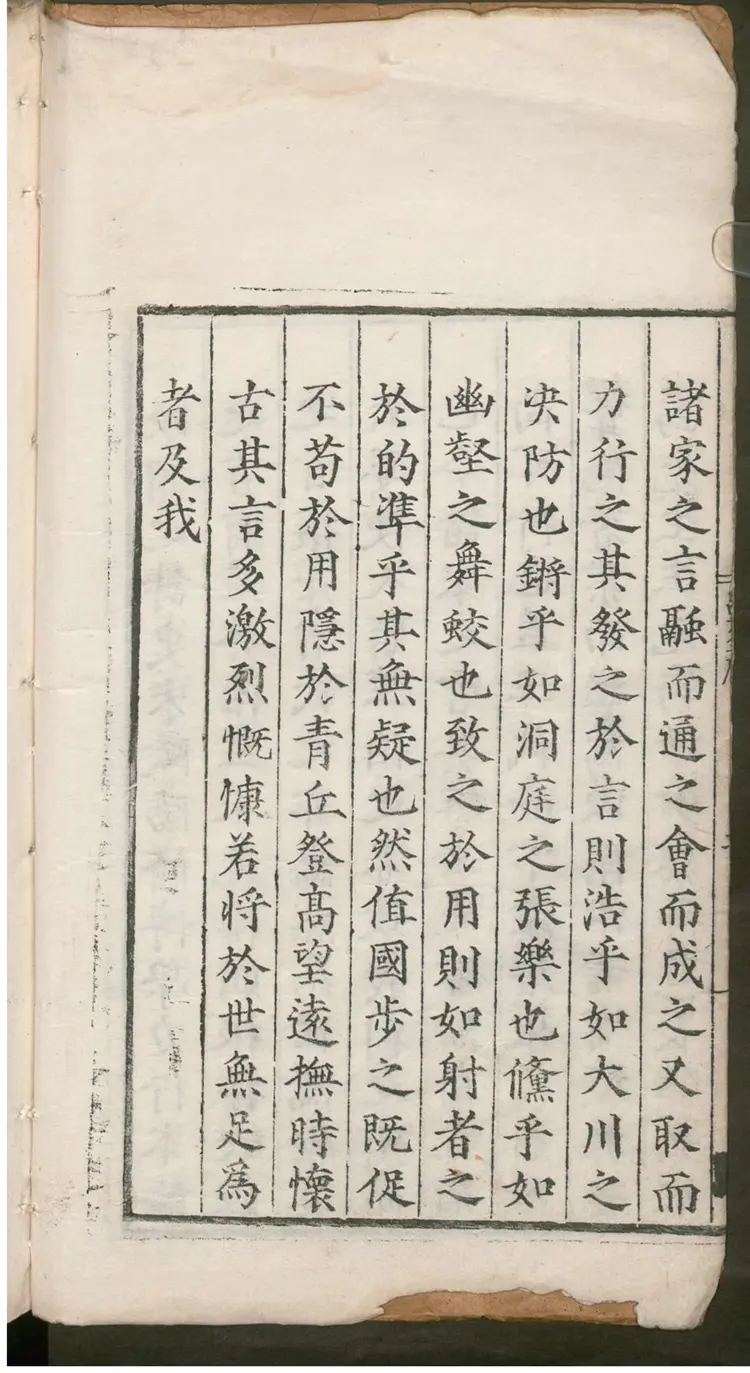 諸家之言融而通之會而成之又取而
力行之其發之於言則浩乎如大川之
決防也鏘乎如洞庭之張樂也儵乎如
幽壑之舞蛟也致之於用則如射者之
於的準乎其無疑也然值國步之既促
不苟於用隱於青丘登高望遠撫時懷
古其言多激烈慨慷若將於世無足為
者及我